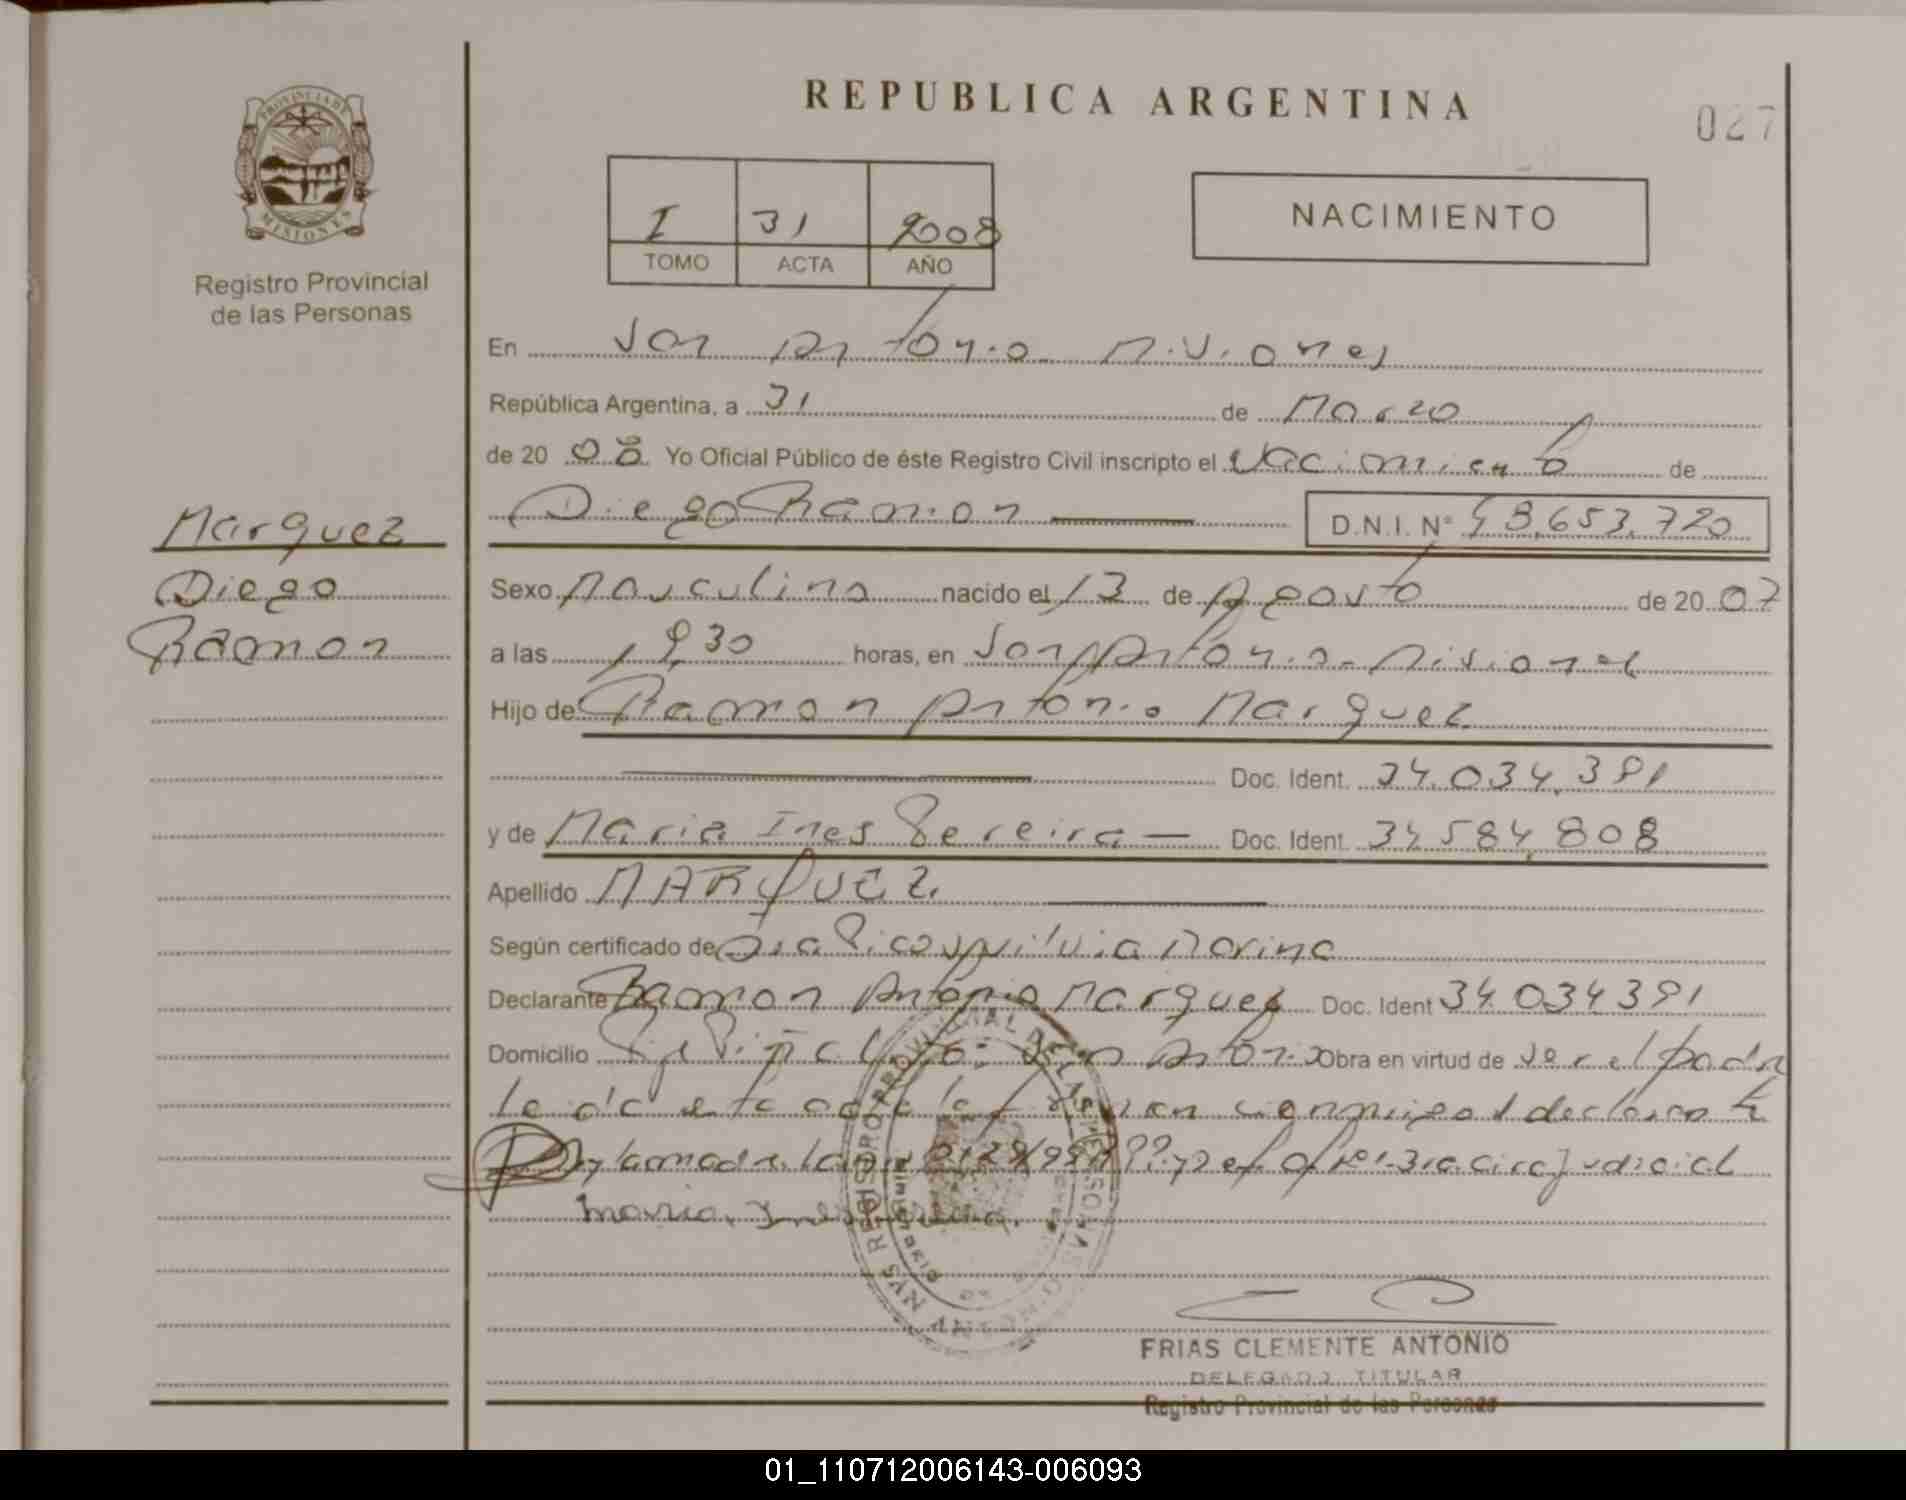 REPUBLICA ARGENTINA
027
PROVINCIA DE
MISIONES
Registro Provincial
de las Personas
I 31 2008
TOMO ACTA AÑO
NACIMIENTO
En San Antonio Misiones
República Argentina, a 31 de Marzo
de 20 08 Yo Oficial Público de éste Registro Civil inscripto el Nacimiento de
Diego Ramon D.N.I. Nº 48,653,720
Marquez
Diego
Ramon
Sexo Masculino nacido el 13 de Agosto de 20 07
a las 19,30 horas, en San Antonio - Misiones
Hijo de Ramon Antonio Marquez
Doc. Ident. 34.034.391
y de Maria Ines Pereira — Doc. Ident. 34584,808
Apellido MARQUEZ.
Según certificado de Silvia Marina
Declarante Ramon Antonio Marquez Doc. Ident 34.034391
Domicilio San Antonio Obra en virtud de ser el padre
declarante
judicial
Maria Ines Pereira.
REGISTRO PROVINCIAL DE LAS PERSONAS
FRIAS CLEMENTE ANTONIO
DELEGADO TITULAR
Registro Provincial de las Personas
01_110712006143-006093